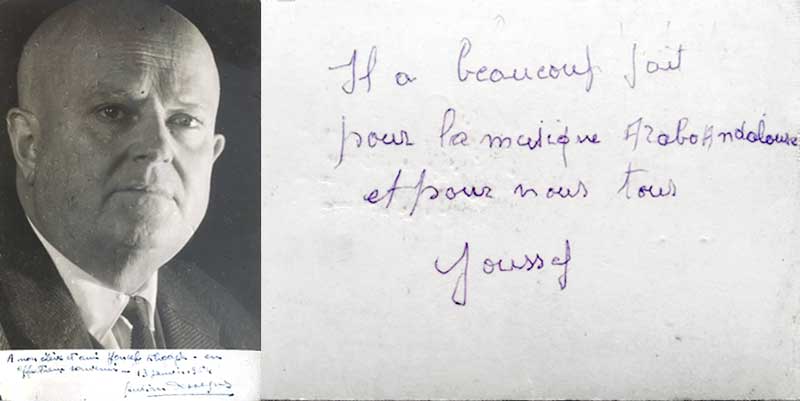 A mon élève et ami Youcef Khodja - en
affectueux souvenir - 13 janvier 1954
Il a beaucoup fait
pour la musique Arabo Andalouse
et pour nous tous
Youssef